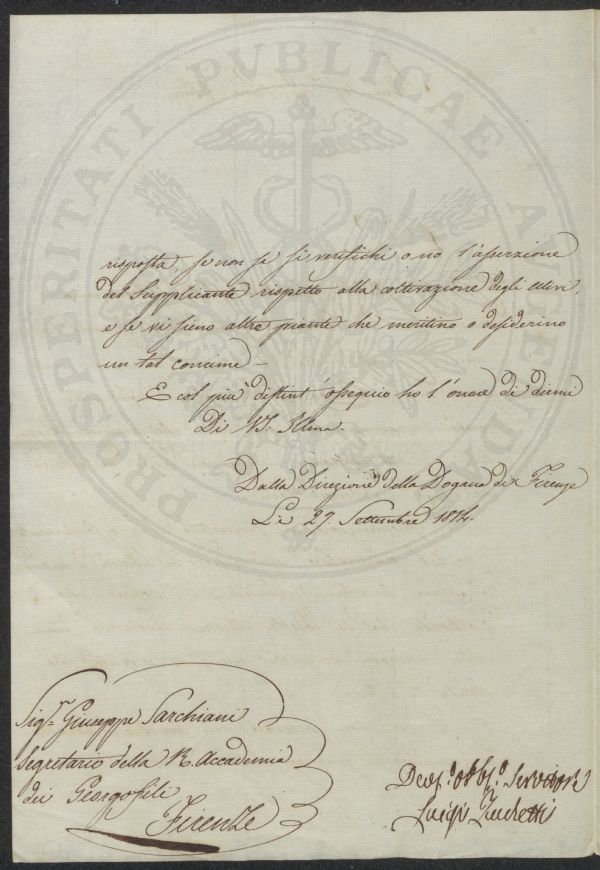 PROSPERITATI PVBLICAE AVGENDAE
risposta, se non se si verifichi o no l'asserzione
del Supplicante rispetto alla coltivazione degli Ulivi,
e se vi sieno altre piante che meritino o desiderino
un tal concime –
E col più distint'ossequio ho l'onore di dirmi
Di VS: Illma.
Dalla Direzione della Dogana di Firenze
Li 27. Settembre 1814.
Sigr. Giuseppe Sarchiani
Segretario della R. Accademia
dei Georgofili
Firenze
Devo. obbo. Servitore
Luigi